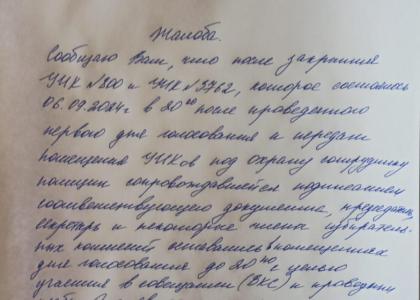 Жалоба.
Сообщаю Вам, что после закрытия
УИК №800 и УИК №3762, которое состоялось
06.09.2024г в 20⁰⁰ после проведенного
первого дня голосования и передачи
помещения УИКов под охрану сотруднику
полиции сопровождавшейся подписанием
соответствующего документа, председатель,
секретарь и некоторые члены избиратель-
ных комиссий оставались в помещениях
для голосования до 20⁴⁰ с целью
участия в совещании (ВКС) и проводили